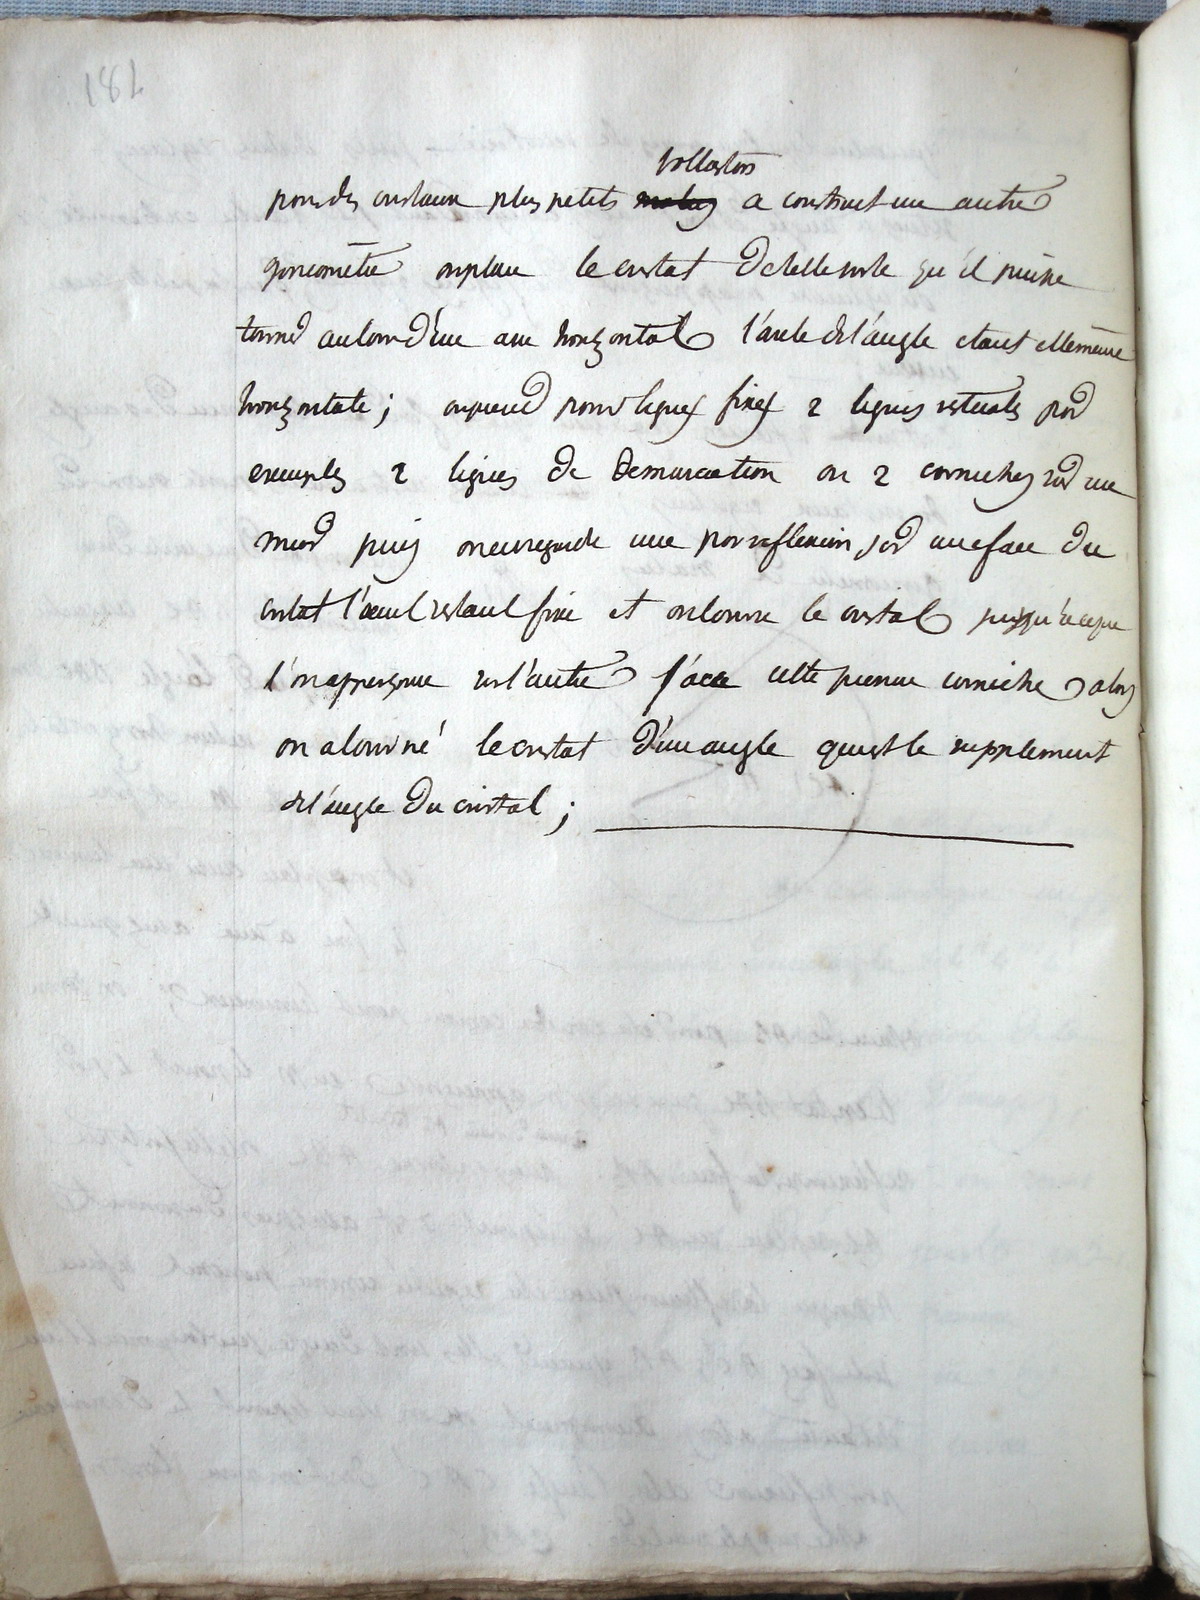 182
vollaston
pour des cristaux plus petits malus a construit un autre
goniomètre on place le cristal de telle sorte qu'il puisse
tourner autour d'un axe horizontal l'arête de l'angle étant elle même
horizontale ; on prend pour lignes fixes 2 lignes verticales par
exemples 2 lignes de démarcation ou 2 corniches sur un
mur puis on en regarde une par reflexion sur une face du
cristal l'œuil restant fixe et on tourne le cristal jusqu'à ce que
l'on apperçoive sur l'autre face cette même corniche alors
on a tourné le cristal d'un angle qui est le supplement
de l'angle du cristal ;